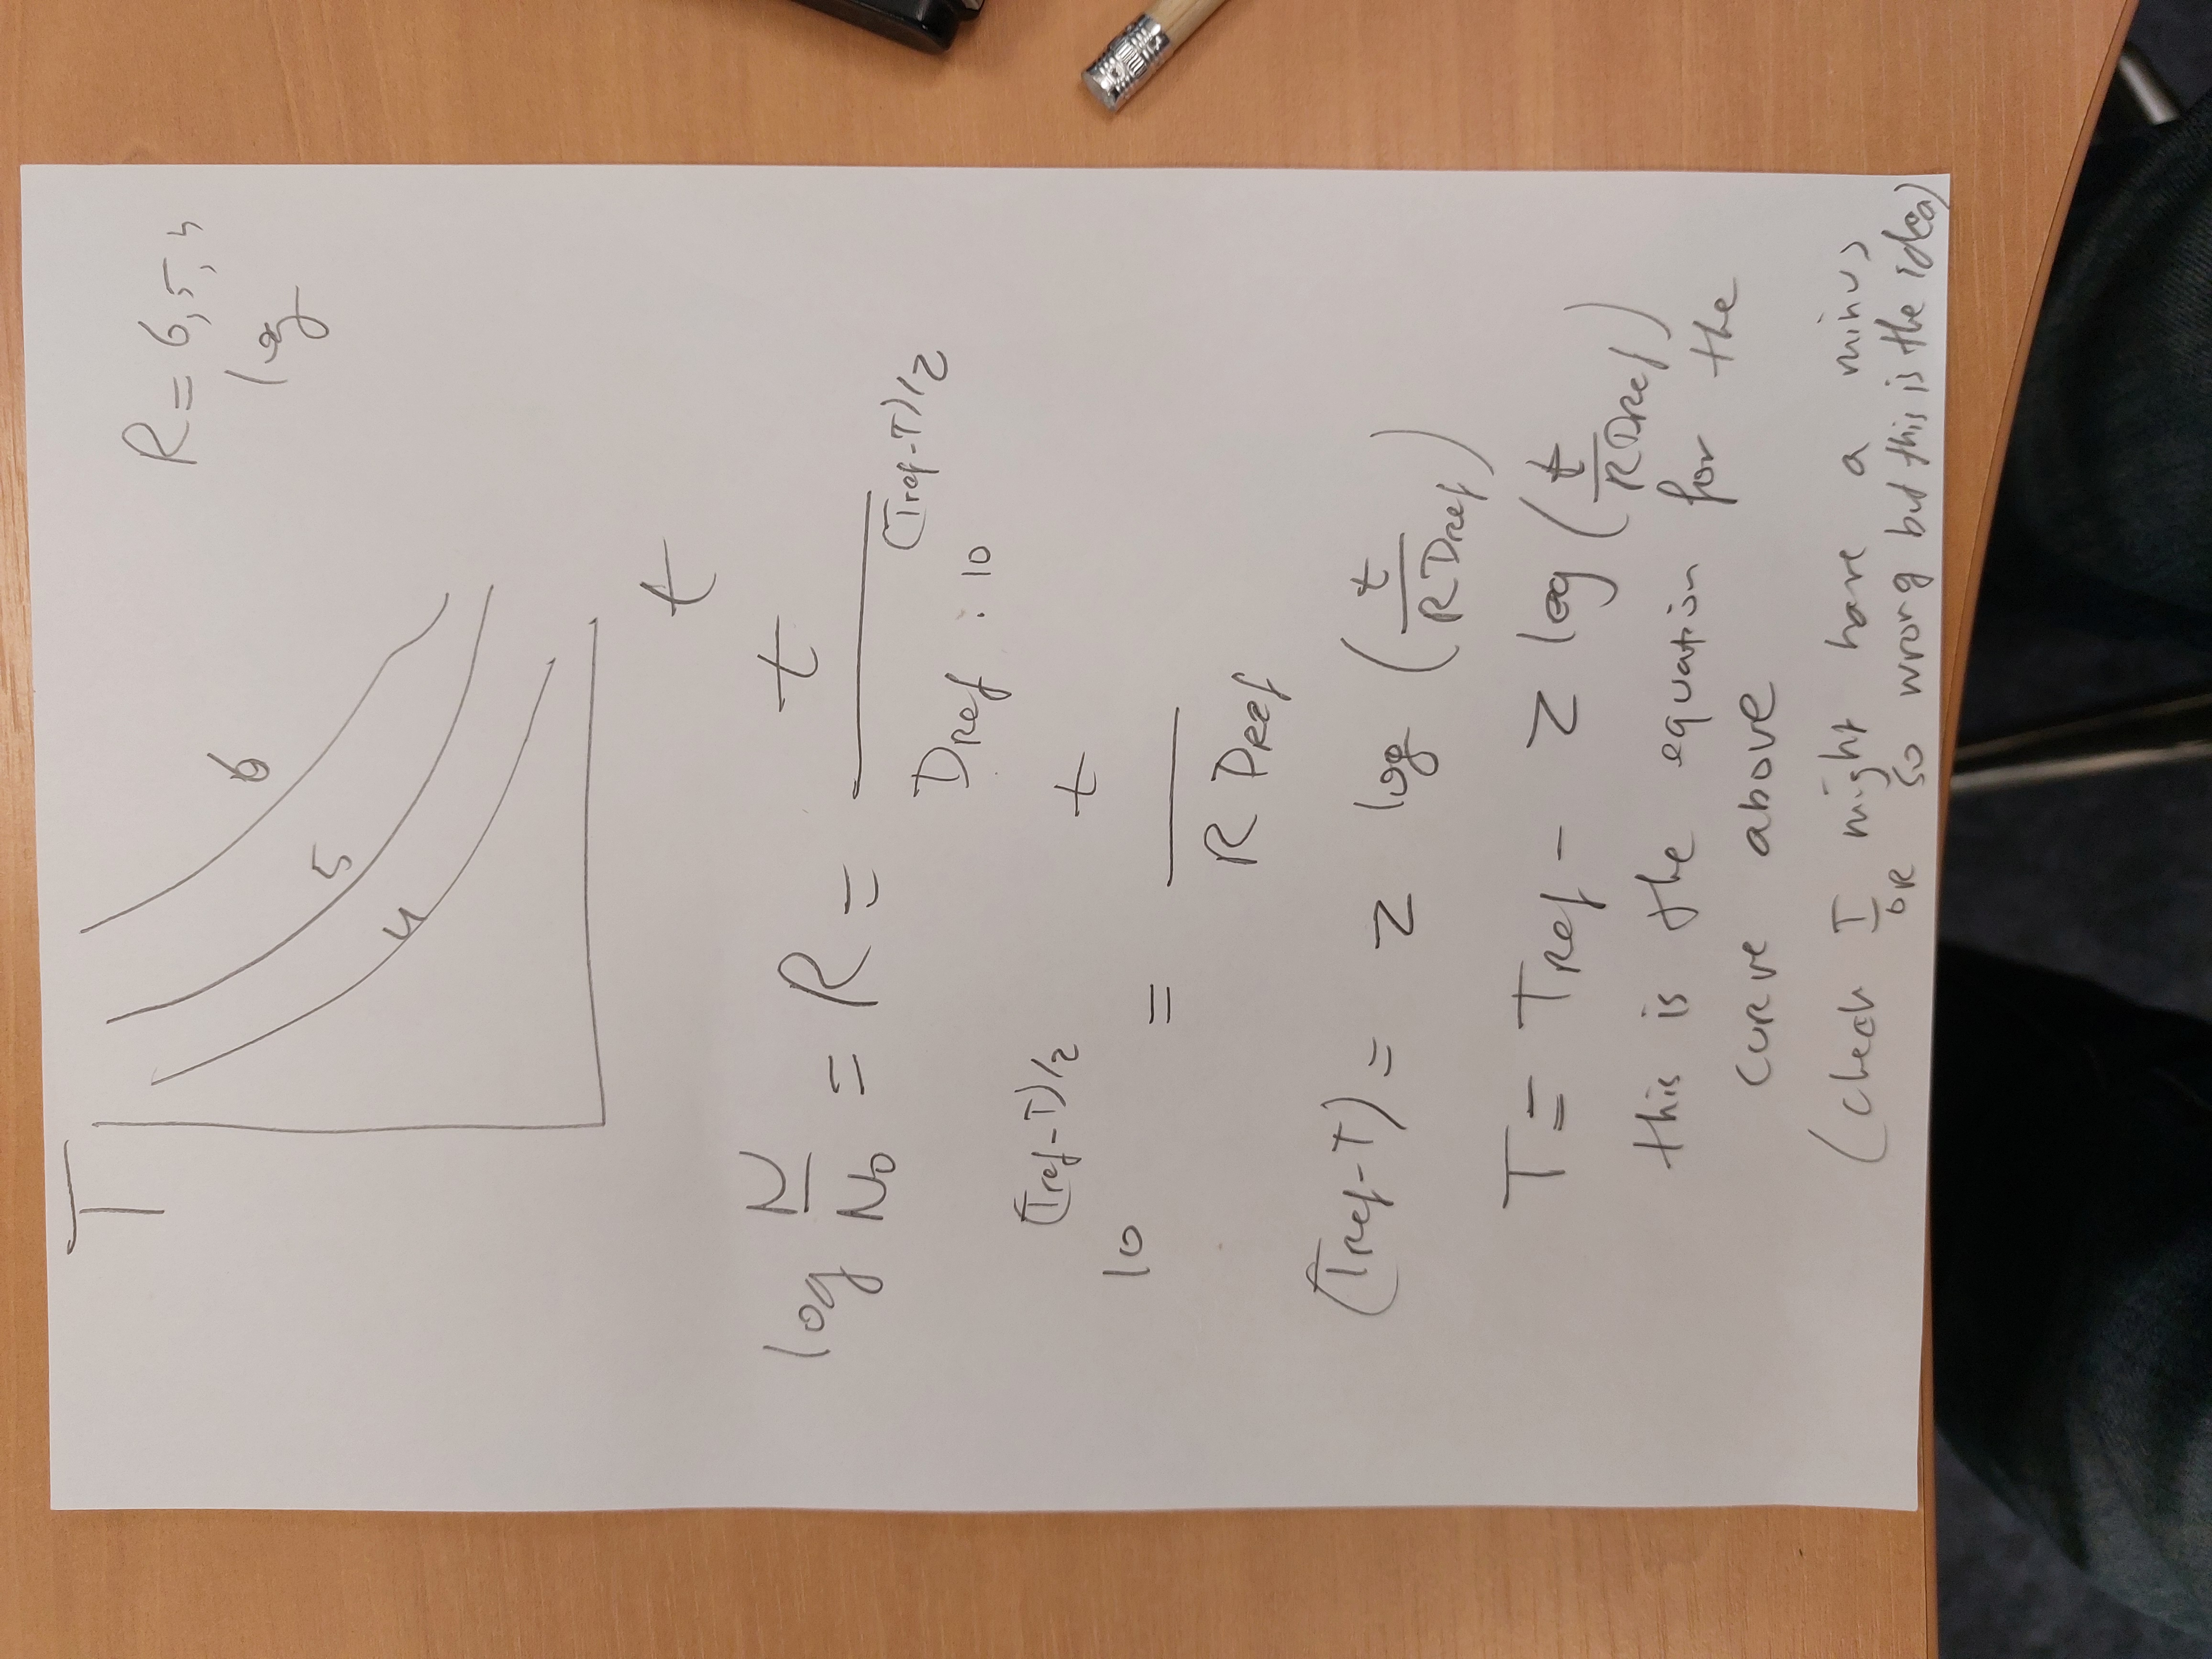 T
R = 6, 5, 4
log
6
5
4
t
log N/N0 = R = t / (DRef . 10^(Tref-T)/z)
10^(Tref-T)/z = t / (R DRef)
(TRef-T) = z log (t / (R DRef))
T = TRef - z log (t / (R DRef))
this is the equation for the
curve above
(check I might have a minus
or so wrong but this is the idea)